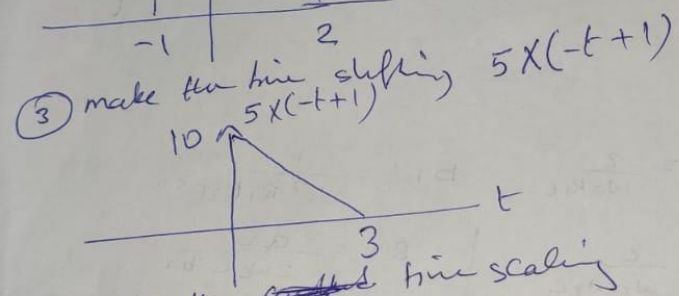 -1 2
③ make the time shifting 5X(-t+1)
5X(-t+1)
10
t
3
time scaling